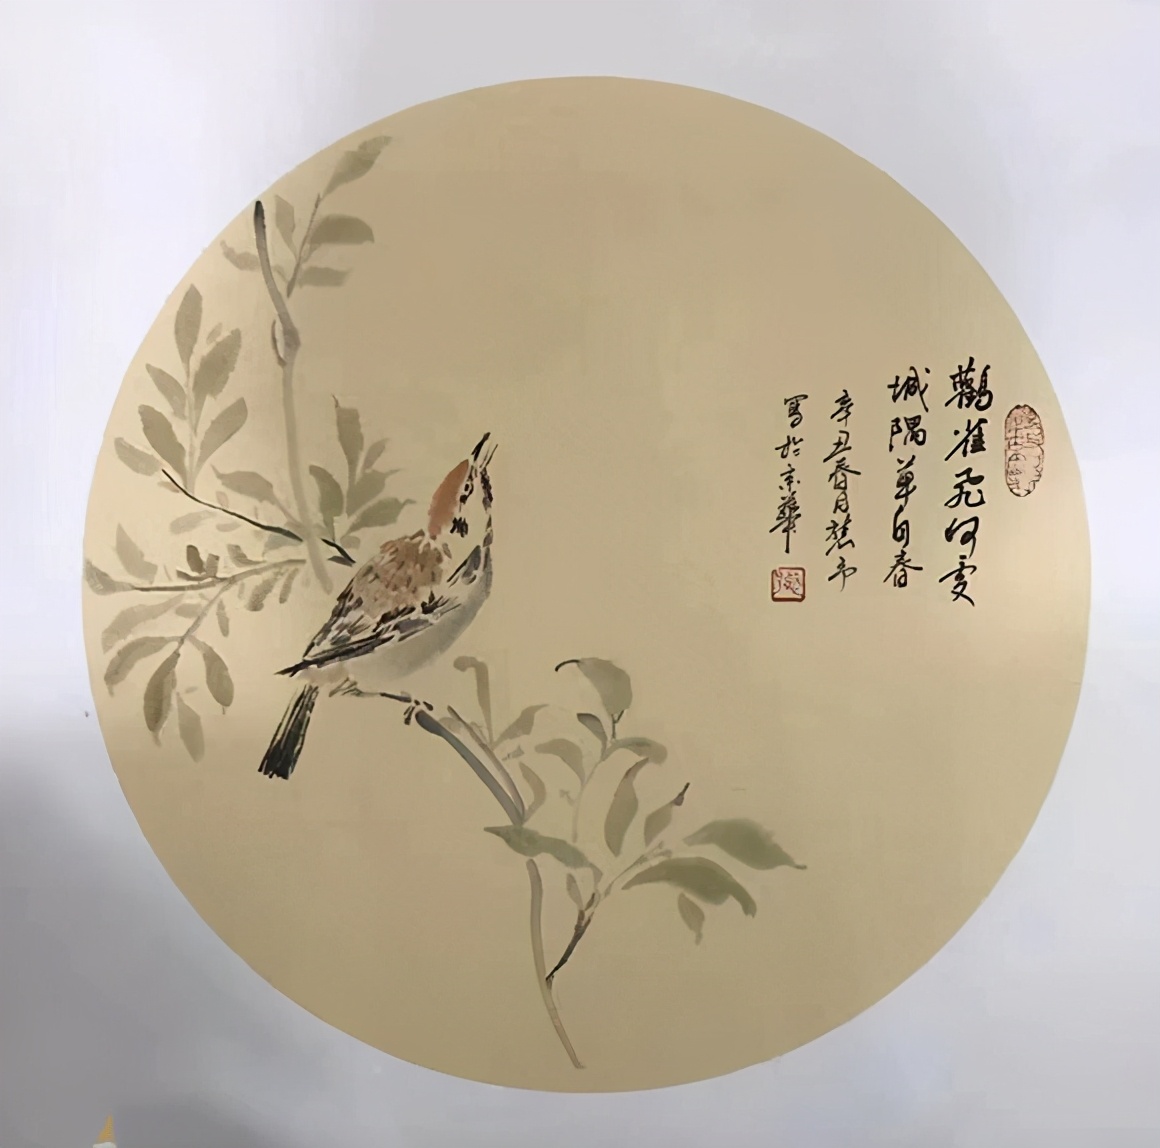 鸛雀飛何處
城隅草自春
辛丑春月
寫於京華